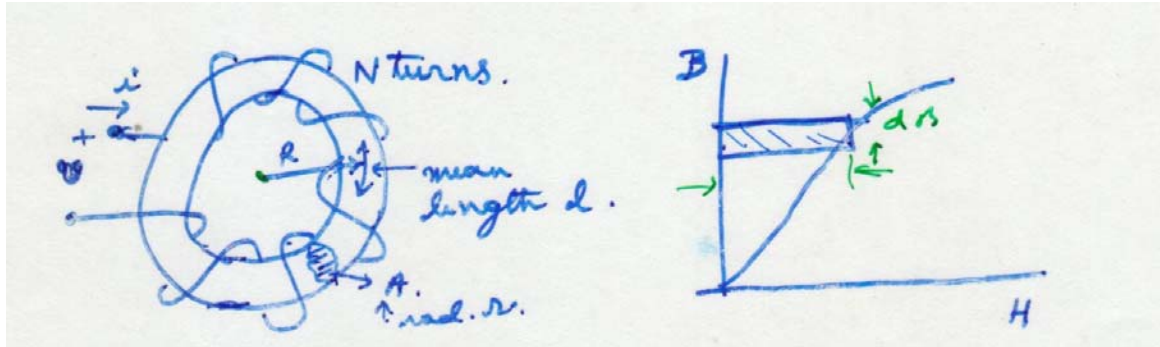 N turns.
i
+
R
mean
length l.
A.
rad. r.
B
dB
H